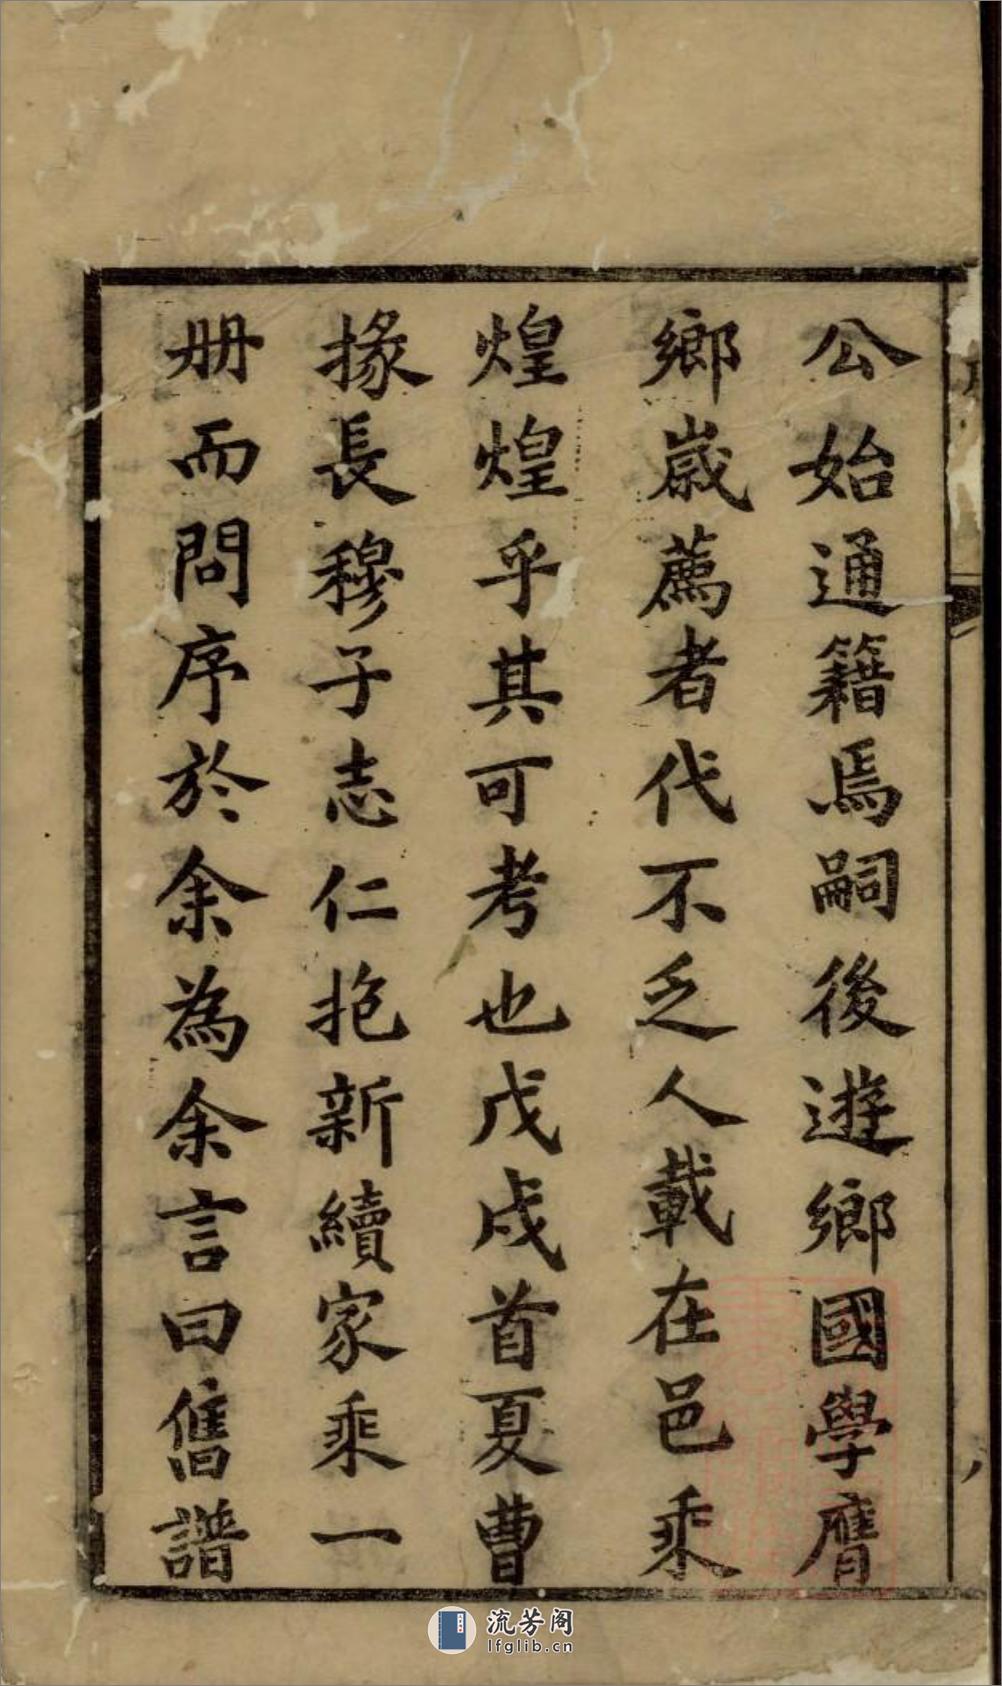 公始通籍焉嗣後遊鄉國學膺
鄉歲薦者代不乏人載在邑乘
煌煌乎其可考也戊戌首夏曹
掾長穆子志仁抱新續家乘一
册而問序於余為余言曰舊譜
流芳阁
lfglib.cn